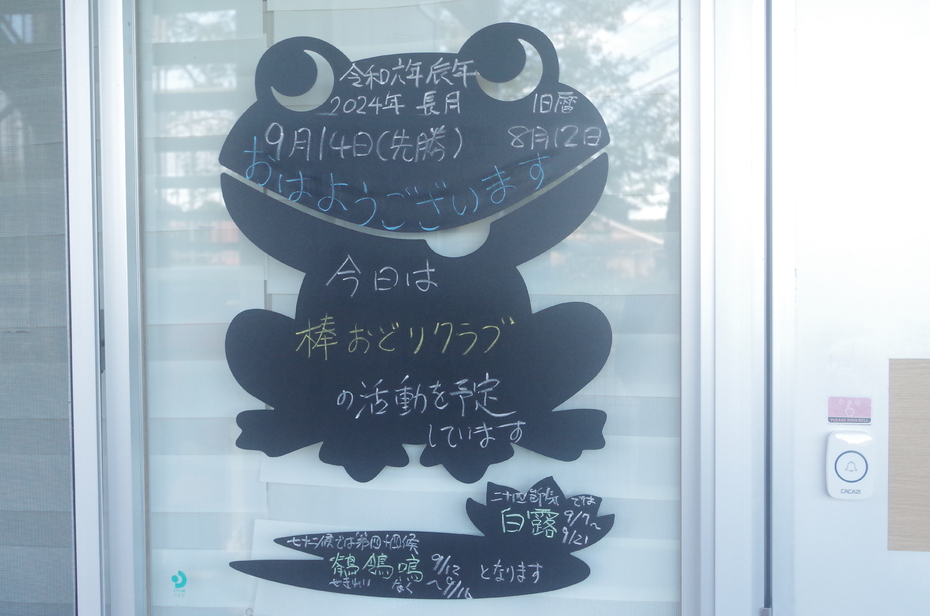 令和六年辰年
2024年 長月
旧暦
9月14日(先勝)
8月12日
おはようございます
今日は
棒おどりクラブ
の活動を予定
しています
二十四節気では
白露 9/7〜9/21
七十二候では第四十四候
鶺鴒鳴 9/12〜9/16
せきれい なく
となります
CACAZI